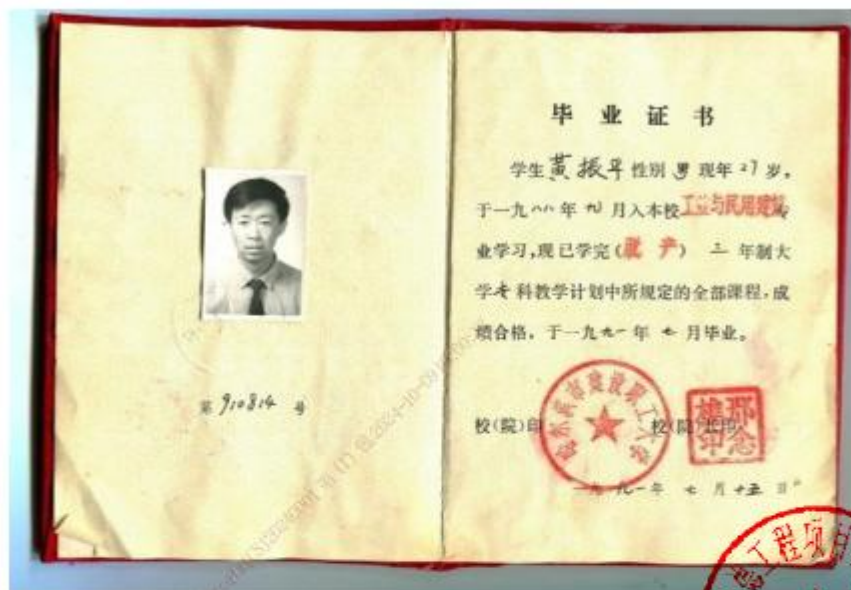 第 910814 号
毕业证书
学生黄振平性别男现年27岁，
于一九八八年九月入本校工业与民用建筑专
业学习，现已学完（脱产）三年制大
学专科教学计划中所规定的全部课程，成
绩合格，于一九九一年七月毕业。
校（院）印 校（院）长印
哈尔滨市建设职工大学
一九九一年七月十五日
工程项目